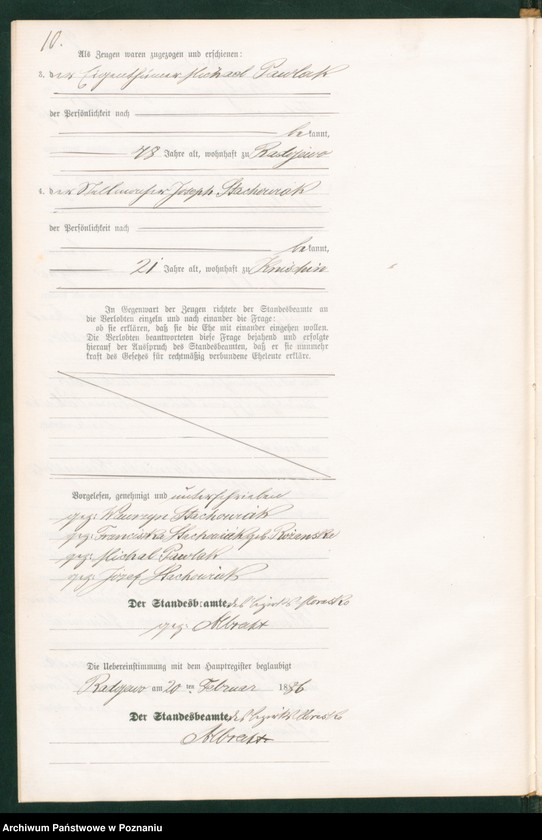 10.
Als Zeugen waren zugezogen und erschienen:
3. der Eigenthümer Michael Pawlak
der Persönlichkeit nach
bekannt,
48 Jahre alt, wohnhaft zu Radojewo
4. der Stellmacher Joseph Stachowiak
der Persönlichkeit nach
bekannt,
21 Jahre alt, wohnhaft zu
In Gegenwart der Zeugen richtete der Standesbeamte an
die Verlobten einzeln und nach einander die Frage:
ob sie erklären, daß sie die Ehe mit einander eingehen wollen.
Die Verlobten beantworteten diese Frage bejahend und erfolgte
hierauf der Ausspruch des Standesbeamten, daß er sie nunmehr
kraft des Gesetzes für rechtmäßig verbundene Eheleute erkläre.
Vorgelesen, genehmigt und unterschrieben
gez. Wawrzyn Stachowiak
gez. Franciska Stachowiak geb.
gez. Michal Pawlak
gez. Jozef Stachowiak
Der Standesbeamte des Bezirks Morasko
gez. Albrecht
Die Uebereinstimmung mit dem Hauptregister beglaubigt
Radojewo am 20 ten Februar 1886
Der Standesbeamte des Bezirks Morasko
Albrecht
Archiwum Państwowe w Poznaniu